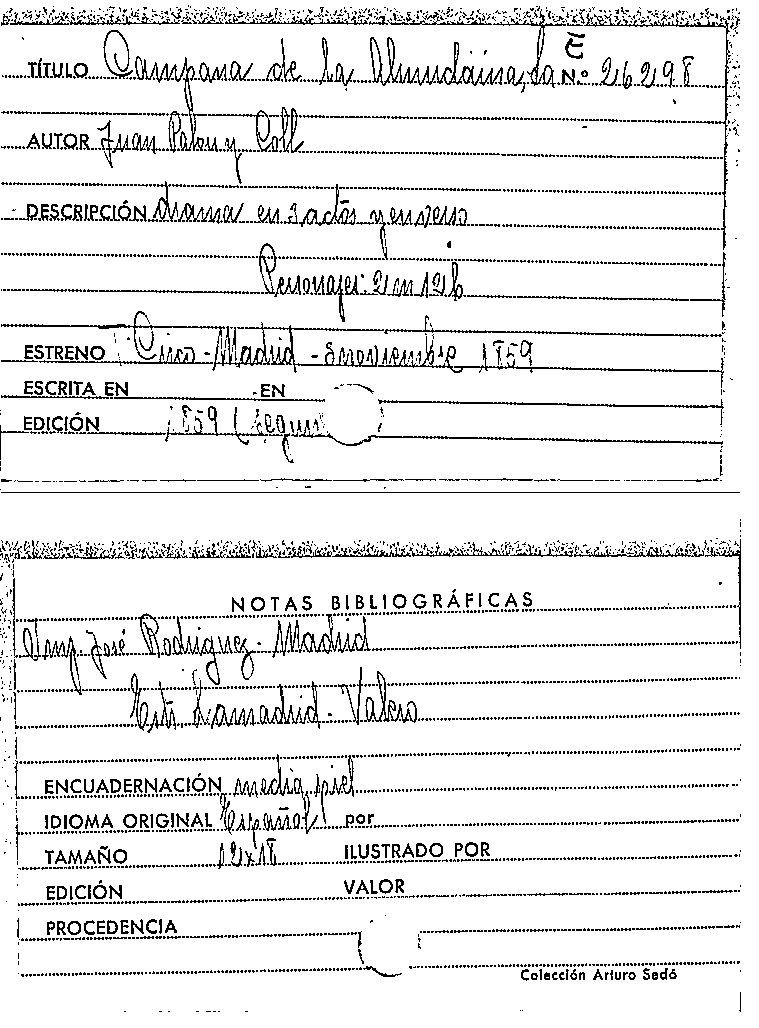 TÍTULO Campana de la Almudaina, la N.º 26298
E
AUTOR Juan Palou y Coll
DESCRIPCIÓN drama en 3 actos y en verso
Personajes: 2 m 12 h
ESTRENO T Circo - Madrid - 3 noviembre 1859
ESCRITA EN EN
EDICIÓN 1859 (Segun
NOTAS BIBLIOGRÁFICAS
Imp. José Rodriguez - Madrid
Estr. Lamadrid - Valero
ENCUADERNACIÓN media piel
IDIOMA ORIGINAL Español por
TAMAÑO 12x18 ILUSTRADO POR
EDICIÓN VALOR
PROCEDENCIA
Colección Arturo Sedó